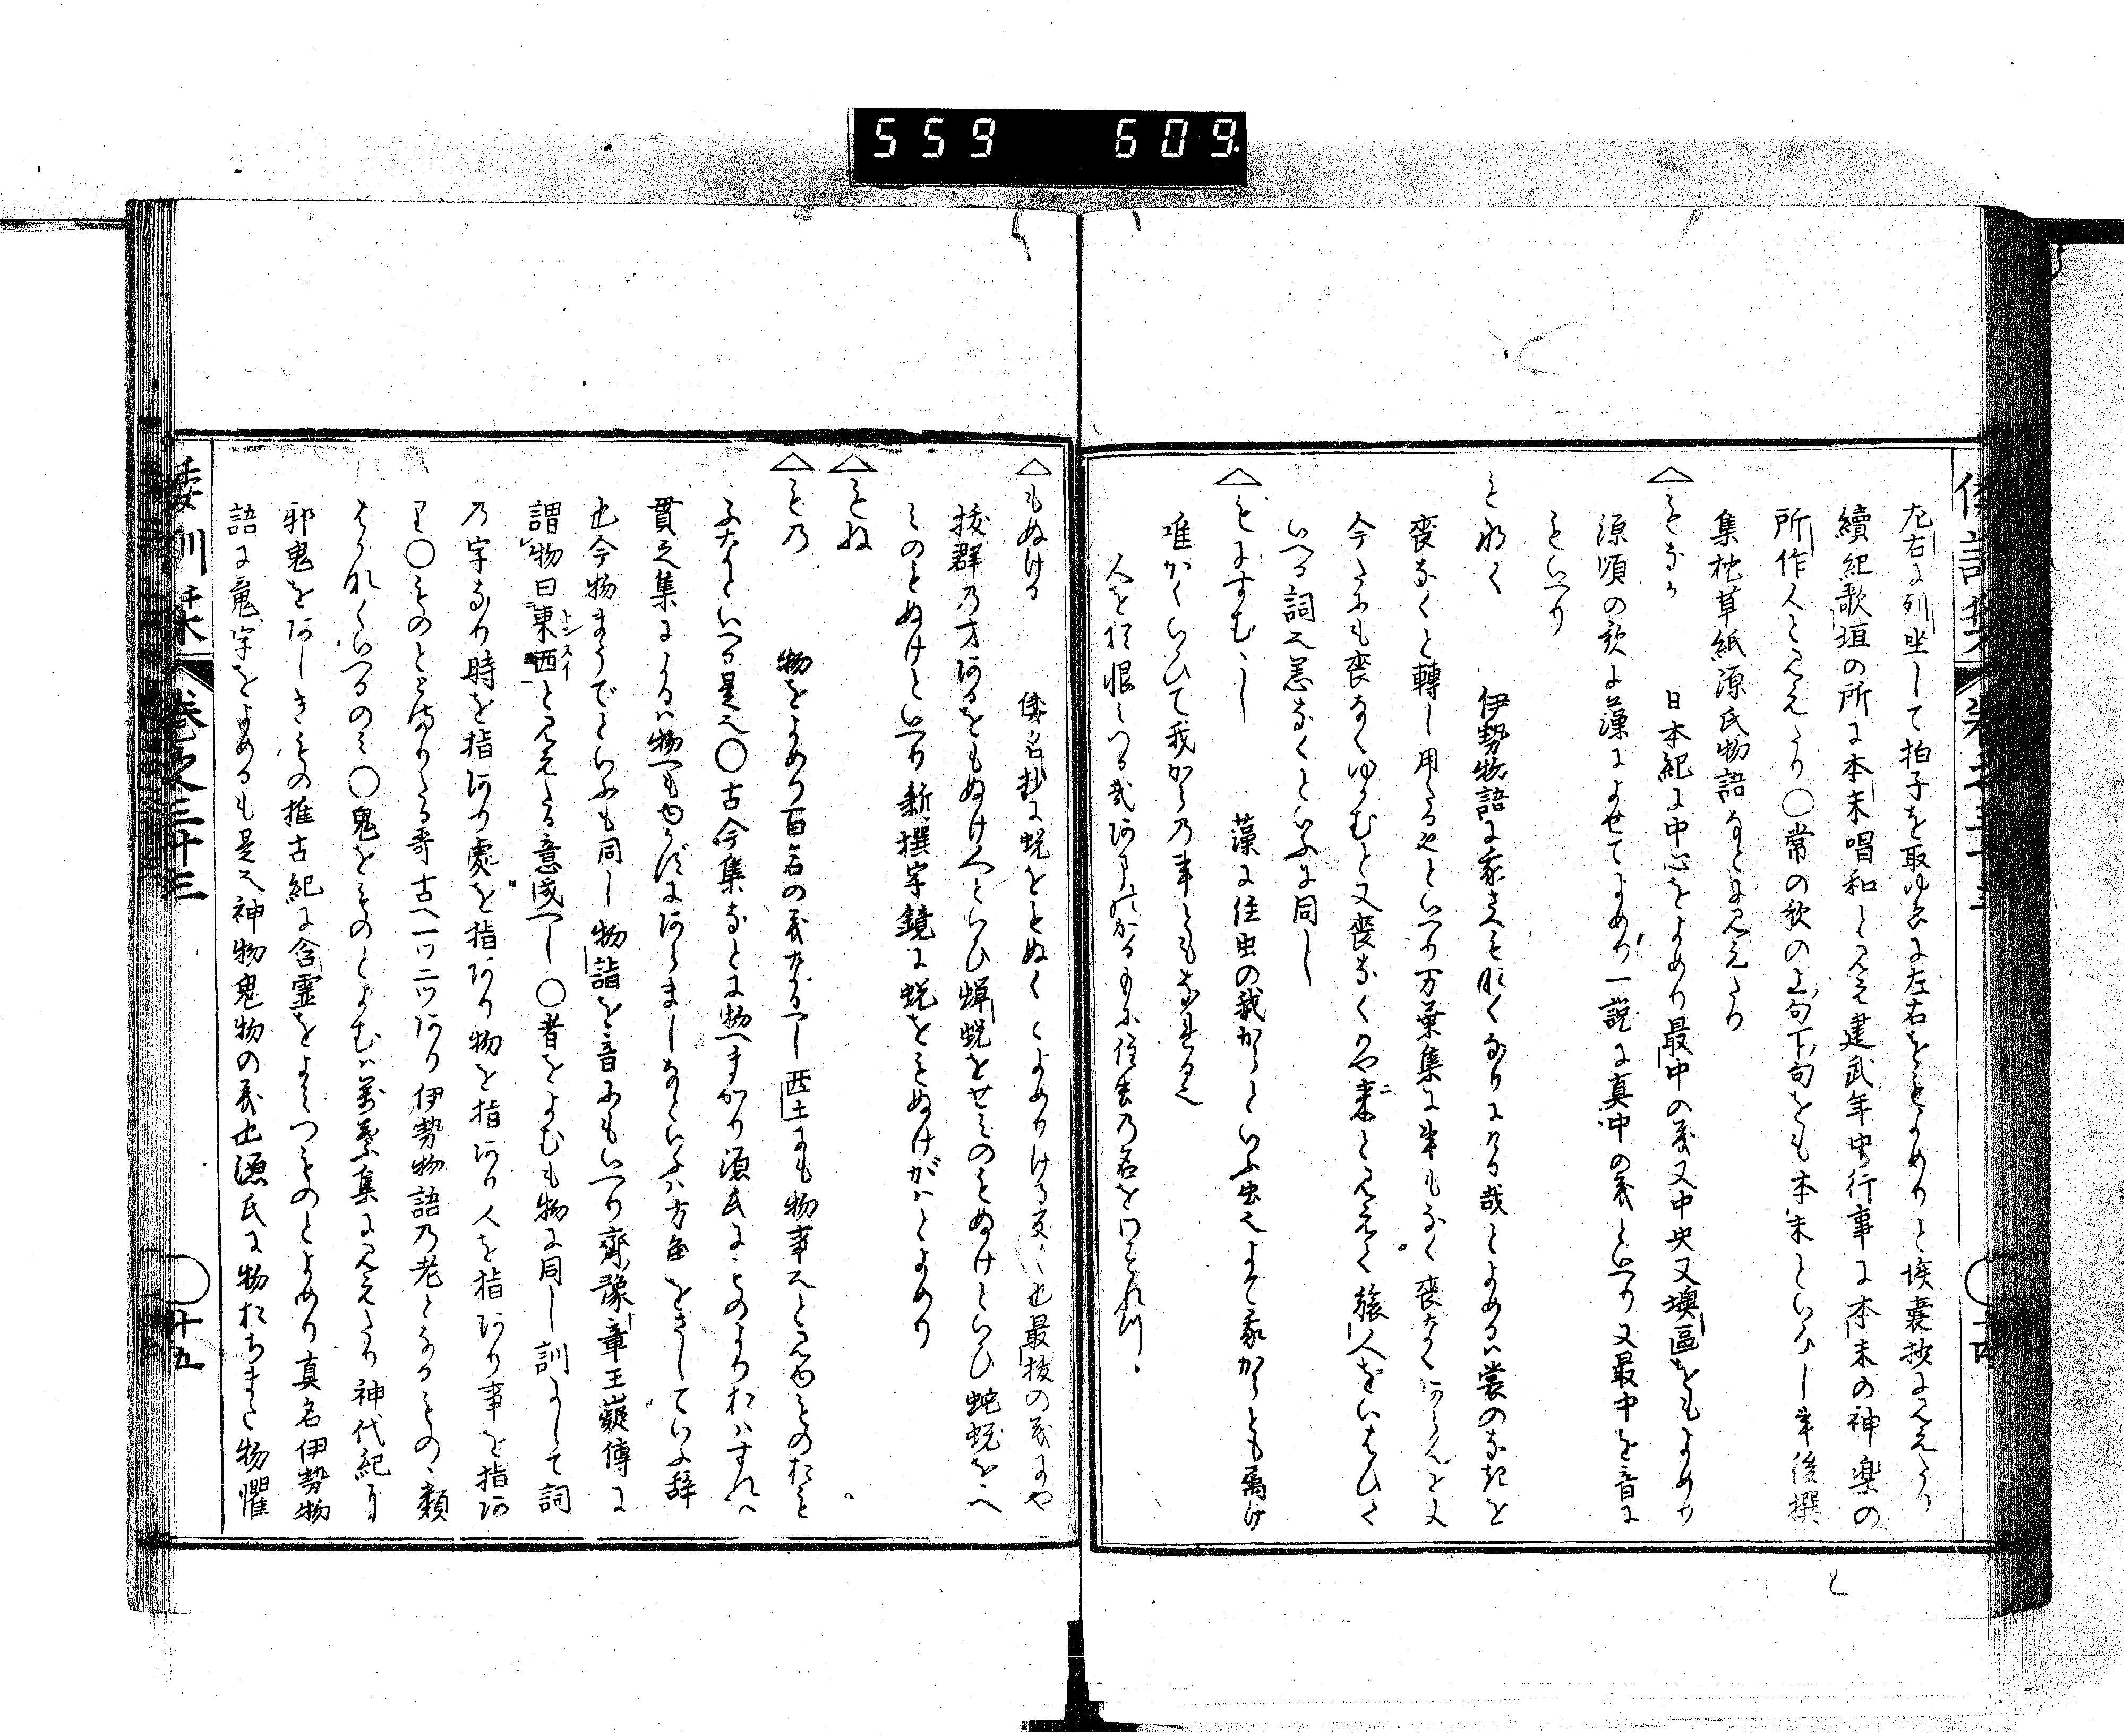 559 609
左右に列坐して拍子を取ゆゑに左右をもよめりと壒嚢抄に見えたり
續紀歌垣の所に本末唱和と見え建武年中行事に本末の神楽の
所作人と見えたり○常の歌の上句下句をも本末といひし事後撰
集枕草紙源氏物語なとに見えたり
△もなか 日本紀に中心をよめり最中の義又中央又墺區をもよめり
源順の歌に藻によせてよめり一説に真中の義といへり又最中を音に
もいへり
もなく 伊勢物語に我さへもなくなりにける哉とよめるハ裳のなきを
喪なくと轉し用たる也といへり万葉集に事もなく喪なくあらんと又
今たにも喪なくゆかむと又喪なくはや来と見えて旅人をいはひて
いへる詞也恙なくといふに同し
△もにすむゝし 藻に住虫の我からといふ虫也よて我からとも属け
唯かくいひて我からの事ともなせる也
人を
△もぬける 倭名抄に蛻をもぬくとよめりける反く也最抜の義にや
抜群の才あるをもぬけ人といひ蝉蛻をせみのもぬけといひ蛇蛻をへ
みのもぬけといへり新撰字鏡に蛻をもぬけがハとよめり
△もね
△もの 物をよめり百名の義なるへし西土にも物事也と見ゆものおも
ふなといへる是也○古今集なとに物へまかり源氏にものよりおハすれハ
貫之集によるハ物へもゆかじにあらましなといふハ方角をさしていふ辞
也今物まうでといふも同し物詣を音にもいへり齊豫章王嶷傳に
謂物曰東西と見えたる意成へし○者をよむも物に同し訓にして詞
の字なり時を指あり處を指あり物を指あり人を指あり事を指あ
り○ものとゝまりたる哥古へ一ツ二ツあり伊勢物語の老となるものゝ類
はかなくいへるのミ○鬼をものとよむハ萬葉集に見えたり神代紀に
邪鬼をあしきもの推古紀に含霊をよミつものとよめり真名伊勢物
語に鬼字をよめるも是也神物鬼物の義也源氏に物おちまた物懼
倭訓栞 巻之三十三 ○十五